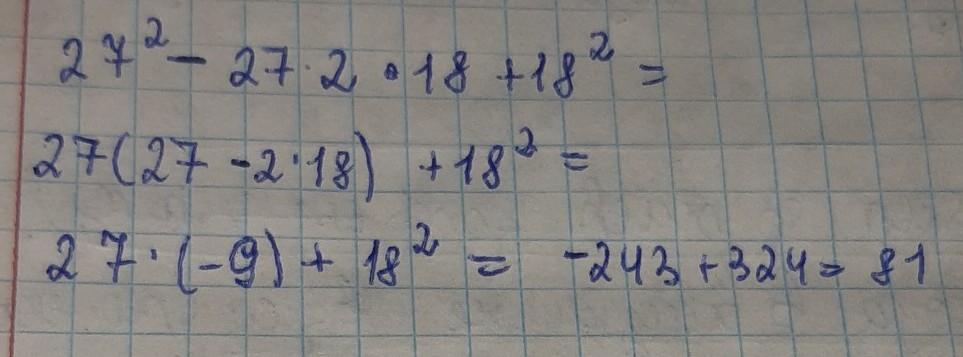 27² - 27·2·18 + 18² =
27(27 - 2·18) + 18² =
27·(-9) + 18² = -243 + 324 = 81